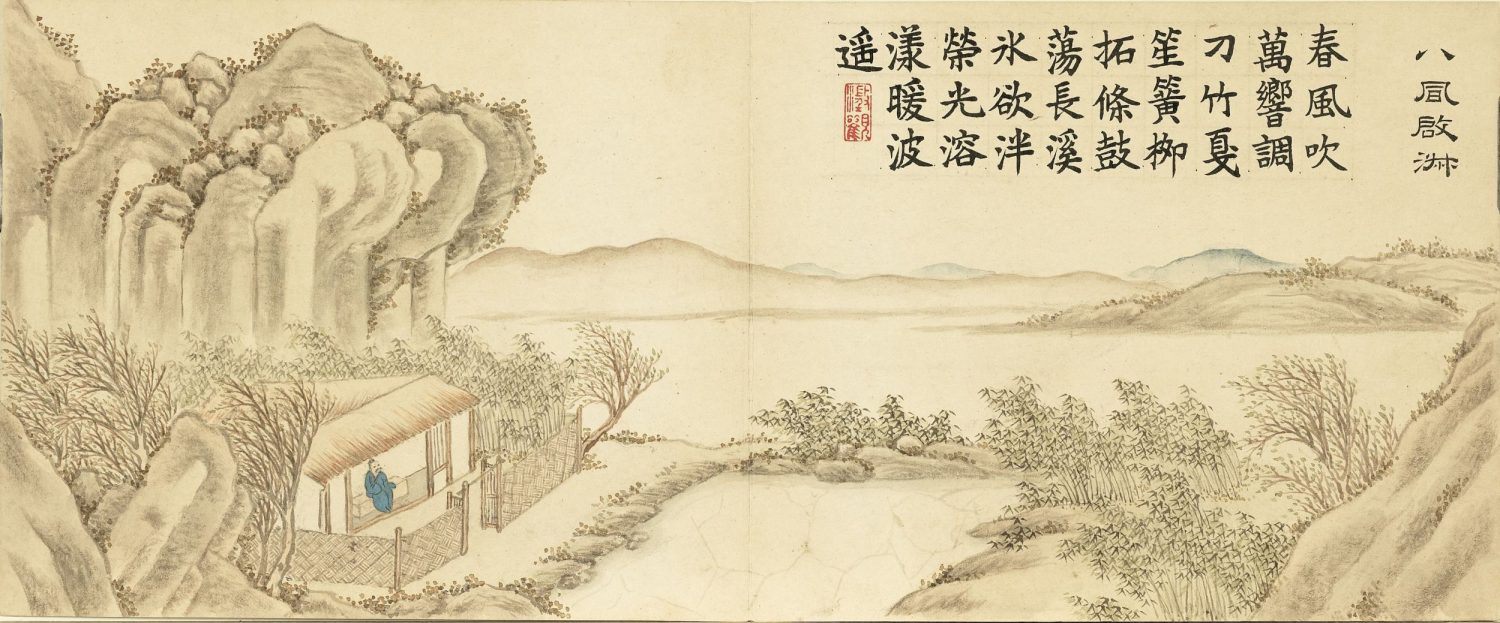 八風啟
春風吹
萬響調
刁竹戛
笙簧栁
拓條鼓
蕩長溪
氷欲泮
榮光溶
漾暖波
遥